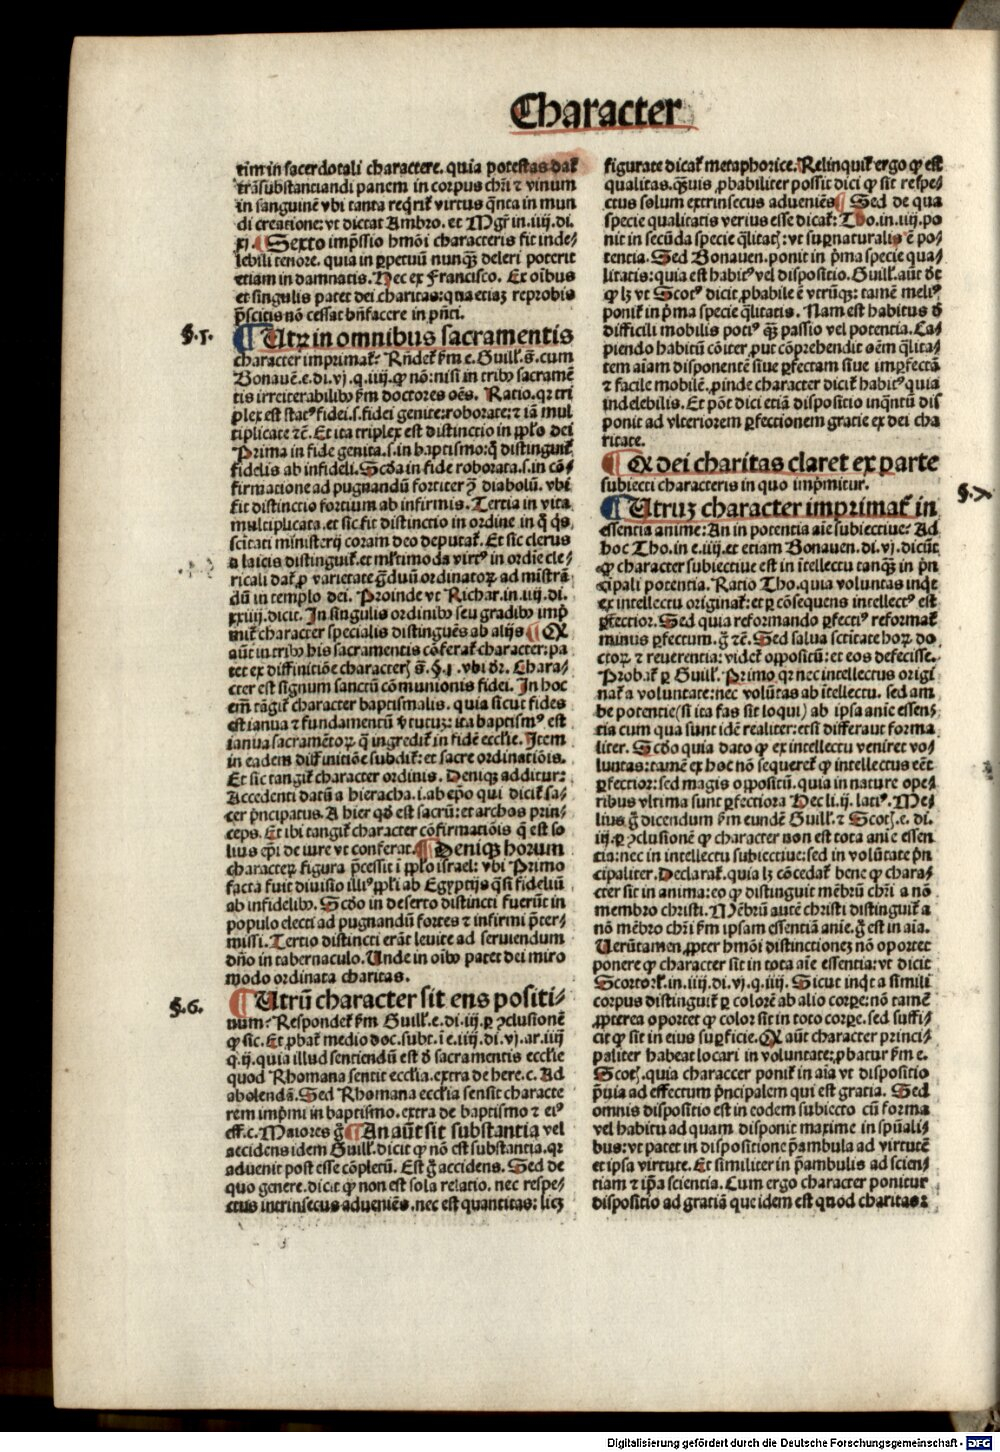 Character
tim in sacerdotali charactere. quia potestas dat᷑
trāsubstantiandi panem in corpus chr̄i ⁊ vinum
in sanguinē vbi tanta req̄rit᷑ virtus q̄nta in mun
di creatione: vt dictat Ambro. et Mgr̄ in.iiij.di.
xj. ¶ Sexto imp̄ssio hmōi characteris fit inde-
lebili tenore. quia in ꝑpetuū nunqꝫ deleri poterit
etiam in damnatis. Nec ex Francisco. Ex oībus
et singulis patet dei charitas: qua etiaꝫ reprobis
p̄scitis nō cessat bn̄facere in pn̄ti.
§.5.
¶ Utrꝫ in omnibus sacramentis
character imprimat᷑: Rn̄det᷑ ẜm e. Guill. s̄. cum
Bonauē. e. di. vj. q. iiij. ꝙ nō: nisi in tribꝰ sacramē
tis irreiterabilibꝰ ẜm doctores oēs. Ratio. qꝛ tri
plex est statꝰ fidei. s. fidei genite: roborate: ⁊ iā mul
tiplicate ⁊c̄. Et ita triplex est distinctio in pp̄lo dei
Prima in fide genita. s. in baptismo: q̄ distinguit᷑
fidelis ab infideli. Scd̄a in fide roborata. s. in cō-
firmatione ad pugnandū fortiter ꝯ̄ diabolū. vbi
fit distinctio fortium ab infirmis. Tertia in vita
multiplicata. et sic fit distinctio in ordine in q̄ q̄s
sc̄itati ministerij coram deo deputat᷑. Et sic clerus
a laicis distinguit᷑. et ml̄timoda virtꝰ in ordīe cle-
ricali dat᷑ ꝓ varietate ḡduū ordinatoꝝ ad mīstrā
dū in templo dei. Proinde vt Richar. in.iiij. di.
xxiiij. dicit. In singulis ordinibꝰ seu gradibꝰ imp̄
mit᷑ character specialis distinguēs ab alijs ¶ Qꝫ
aūt in tribꝰ his sacramentis cōferat᷑ character: pa
tet ex diffinitiōe characteꝝ s̄. §. 1. vbi dr̄. Chara-
cter est signum sanctū cōmunionis fidei. In hoc
em̄ tāgit᷑ character baptismalis. quia sicut fides
est ianua ⁊ fundamentū v̄tutuꝫ: ita baptismꝰ est
ianua sacramētoꝝ q̄ ingredit᷑ in fidē ecclīe. Item
in eadem diffinitiōe subdit᷑: et sacre ordinatiōis.
Et sic tangit᷑ character ordinis. Deniqꝫ additur:
Accedenti datū a hieracha. i. ab ep̄o qui dicit᷑ sa-
cer p̄ncipatus. A hier qd̄ est sacrū: et archos prin-
ceps. Et ibi tangit᷑ character cōfirmatiōis q̄ est so
lius ep̄i de iure vt conferat. ¶ Deniqꝫ horum
characteꝝ figura p̄cessit ī pp̄lo israel: vbi Primo
facta fuit diuisio illiꝰ pp̄li ab Egyptijs q̄si fideliū
ab infidelibꝰ. Scd̄o in deserto distincti fuerūt in
populo electi ad pugnandū fortes ⁊ infirmi p̄ter-
missi. Tertio distincti erāt leuite ad seruiendum
dn̄o in tabernaculo. Unde in oībꝰ patet dei miro
modo ordinata charitas.
§.6.
¶ Utrū character sit ens positi-
uum: Respondet᷑ ẜm Guill. e. di. iij. ꝑ ꝯclusionē
ꝙ sic. Et ꝓbat᷑ medio doc. subt. ī e. iiij. di. vj. ar. iiij
q. ij. quia illud sentiendū est d̄ sacramentis ecclīe
quod Rhomana sentit ecclīa. extra de here. c. Ad
abolendā. Sed Rhomana ecclīa sensit characte
rem imp̄mi in baptismo. extra de baptismo ⁊ eiꝰ
eff. c. Maiores ḡ ¶ An aūt sit substantia vel
accidens idem Guill. dicit ꝙ nō est substantia. qꝛ
aduenit post esse cōpletū. Est ḡ accidens. Sed de
quo genere. dicit ꝙ non est sola relatio. nec respe-
ctus intrinsecus adueniēs. nec est quantitas: licꝫ
figurate dicat᷑ metaphorice. Relinquit᷑ ergo ꝙ est
qualitas. q̄uis ꝓbabiliter possit dici ꝙ sit respe-
ctus solum extrinsecus adueniēs ¶ Sed de qua
specie qualitatis verius esse dicat᷑: Tho. in. iiij. po
nit in secūda specie q̄litatꝭ: vt suꝑnaturalis ē po-
tentia. Sed Bonauen. ponit in p̄ma specie qua-
litatis: quia est habitꝰ vel dispositio. Guill. aūt d̄t
ꝙ lꝫ vt Scotꝰ dicit ꝓbabile ē vtrūqꝫ: tamē meliꝰ
ponit᷑ in p̄ma specie q̄litatis. Nam est habitus d̄
difficili mobilis potiꝰ qꝫ passio vel potentia. Ca-
piendo habitū cōiter ꝓut cōprehendit oēm q̄lita-
tem aīam disponentē siue ꝑfectam siue imꝑfectā
⁊ facile mobilē. ꝓinde character dicit᷑ habitꝰ quia
indelebilis. Et pōt dici etiā dispositio inq̄ntū dis
ponit ad vlteriorem ꝑfectionem gratie ex dei cha
ritate.
¶ Qꝫ dei charitas claret ex parte
subiecti characteris in quo imp̄mitur.
§.7
¶ Utruꝫ character imprimat᷑ in
essentia anime: An in potentia aīe subiectiue: Ad
hoc Tho. in e. iiij. et etiam Bonauen. di. vj. dicūt
ꝙ character subiectiue est in ītellectu tanqꝫ in p̄n
cipali potentia. Ratio Tho. quia voluntas inq̄t
ex intellectu originat᷑: et ꝑ cōsequens intellectꝰ est
ꝑfectior. Sed quia reformando ꝑfectiꝰ reformat᷑
minus ꝑfectum. ḡ ⁊c̄. Sed salua sctitate hoꝝ do
ctoꝝ ⁊ reuerentia: videt᷑ oppositū: et eos defecisse.
Probat᷑ ꝑ Guill. Primo qꝛ nec intellectus origi
nat᷑ a voluntate: nec volūtas ab ītellectu. sed am
be potentie (si ita fas sit loqui) ab ipsa anīe essen-
tia cum qua sunt idē realiter: etsi differant forma
liter. Scd̄o quia dato ꝙ ex intellectu veniret vo-
luntas: tamē ex hoc nō sequeret᷑ ꝙ intellectus eēt
ꝑfectior: sed magis oppositū. quia in nature ope-
ribus vltima sunt ꝑfectiora Hec li. ij. latiꝰ. Me-
lius ḡ dicendum ẜm eundē Guill. ⁊ Scotꝭ. e. di.
iij. ꝑ ꝯclusionē ꝙ character non est tota anīe essen
tia: nec in intellectu subiectiue: sed in volūtate p̄n
cipaliter. Declarat᷑. quia lꝫ cōcedat᷑ bene ꝙ chara-
cter sit in anima: eo ꝙ distinguit mēbrū chr̄i a nō
membro christi. Mēbrū autē christi distinguit᷑ a
nō mēbro chr̄i ẜm ipsam essentiā anīe. ḡ est in aīa.
Uerūtamen ꝓpter hmōi distinctionez nō oportet
ponere ꝙ character sit in tota aīe essentia: vt dicit
Scortork. in. iiij. di. vj. q. iiij. Sicut inq̄t a simili
corpus distinguit᷑ ꝑ colorē ab alio corꝑe: nō tamē
ꝓpterea oportet ꝙ color sit in toto corꝑe. sed suffi-
cit ꝙ sit in eius suꝑficie. Qꝫ aūt character princi-
paliter habeat locari in voluntate: ꝓbatur ẜm e.
Scotꝭ. quia characcer ponit᷑ in aīa vt dispositio
p̄uia ad effectum p̄ncipalem qui est gratia. Sed
omnis dispositio est in eodem subiecto cū forma
vel habitu ad quam disponit maxime in spūali-
bus: vt patet in dispositione p̄ambula ad virtutē
et ipsa virtute. Et similiter in p̄ambulis ad scien-
tiam ⁊ ip̄a scientia. Cum ergo character ponitur
dispositio ad gratiā que idem est quod charitas:
Digitalisierung gefördert durch die Deutsche Forschungsgemeinschaft - DFG